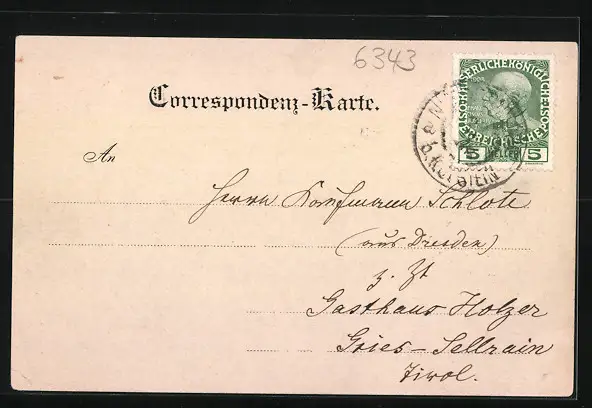 6343
KAISERLICHE KÖNIGLICHE
ÖSTERREICHISCHE
5 5
b. KUFSTEIN
Correspondenz-Karte.
An
Herrn Kaufmann Schlote
(aus Dresden)
z. Zt
Gasthaus Holzer
Gries-Sellrain
Tirol.